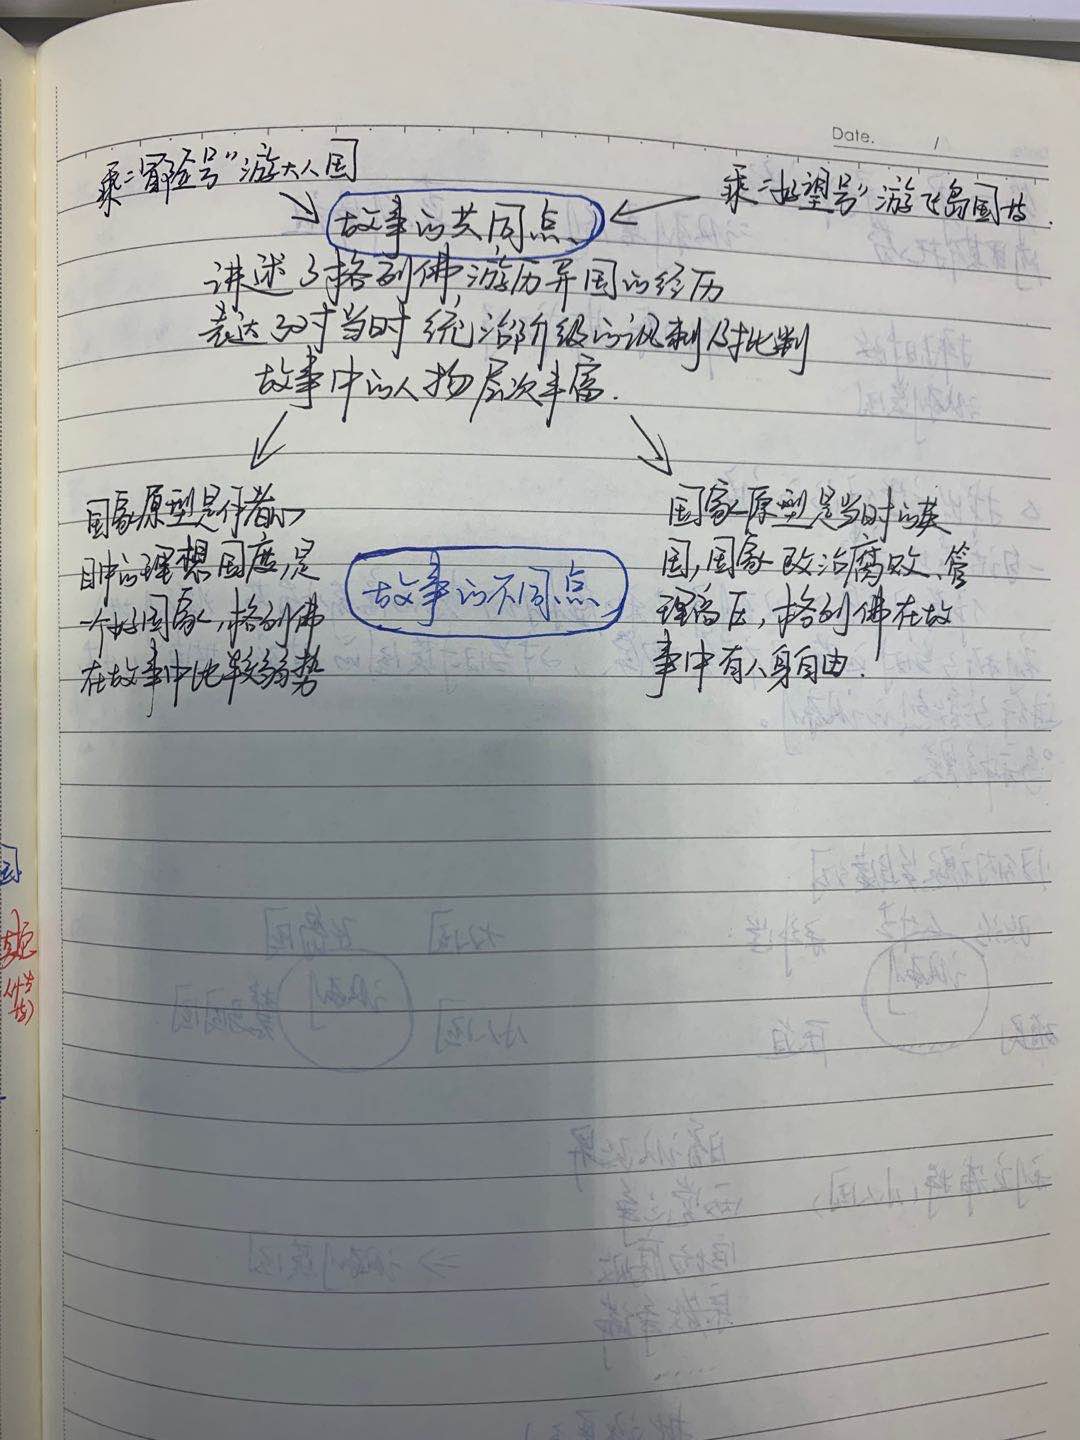 Date.
乘"冒险号"游大人国
乘"好望号"游飞岛国
故事的共同点
讲述了格列佛游历异国的经历
表达了对当时统治阶级的讽刺及批判
故事中的人物层次丰富.
国家原型是作者心
目中的理想国度,是
一个好国家,格列佛
在故事中比较弱势
故事的不同点
国家原型是当时的英
国,国家政治腐败、管
理高压,格列佛在故
事中有人身自由.